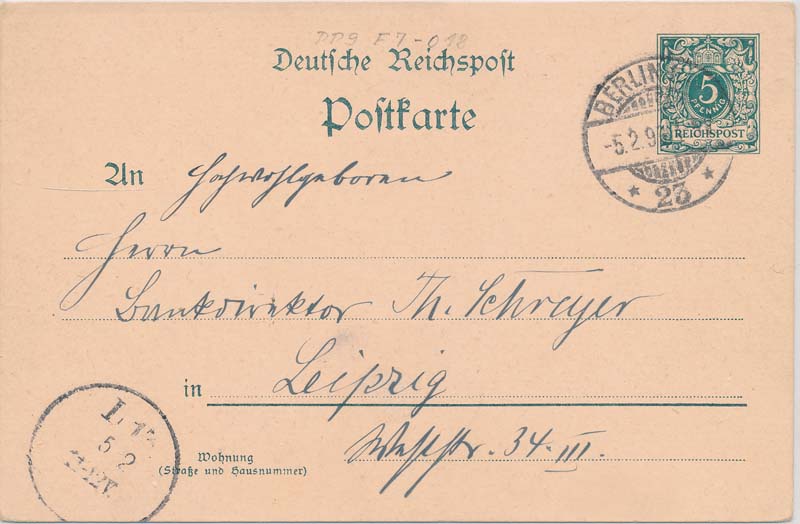 PP9 F7-018
Deutsche Reichspost
Postkarte
5
PFENNIG
REICHSPOST
BERLIN
-5.2.9
* 23 *
An Hochwohlgeboren
Herrn
Bankdirektor Th. Schreyer
in Leipzig
Weststr. 34. III.
Wohnung
(Straße und Hausnummer)
5 2